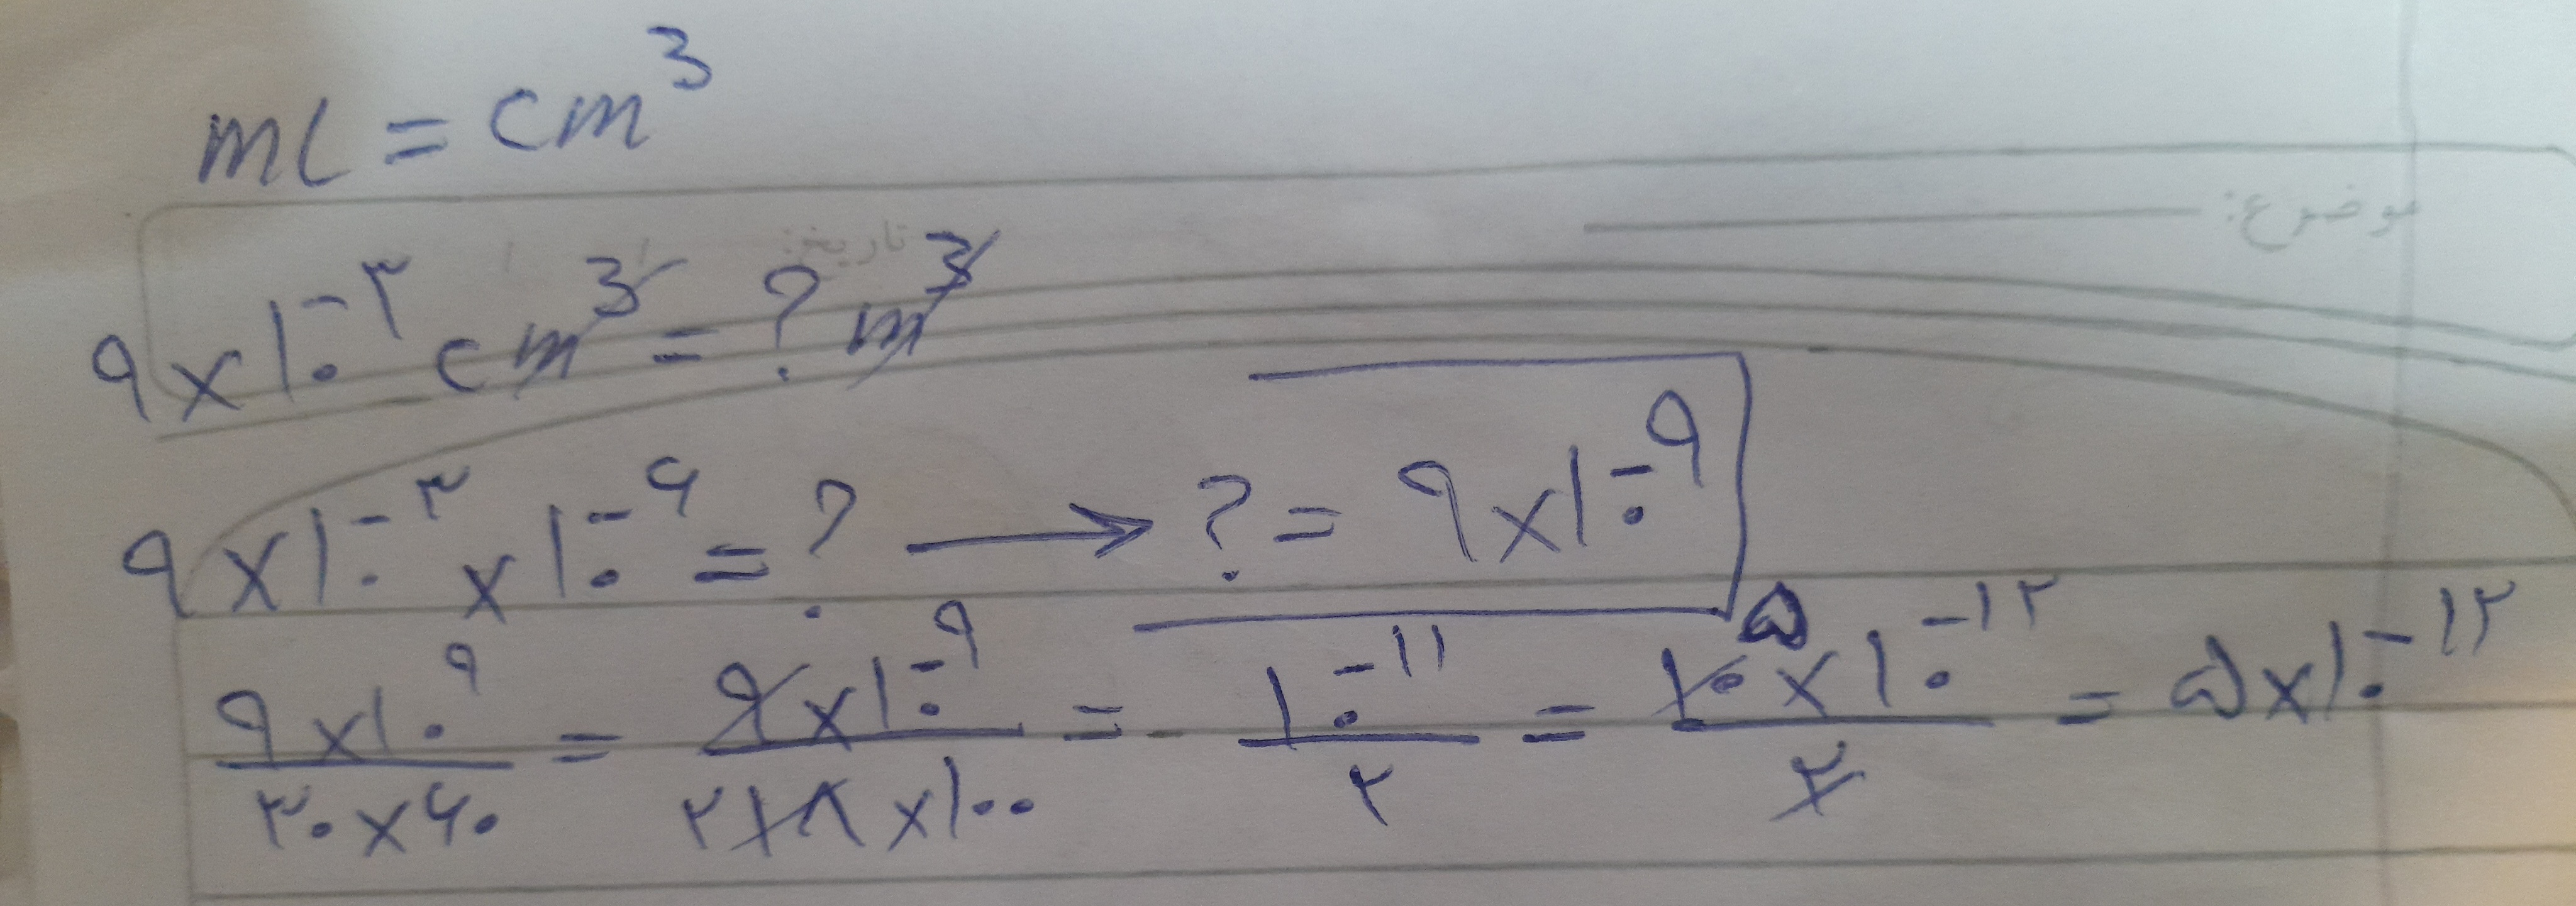 ml = cm³
موضوع:
تاریخ: / /
۹×۱۰^-۳ cm³ = ? m³
۹×۱۰^-۳ × ۱۰^-۶ = ? → ? = ۹×۱۰^-۹
(۹×۱۰^۹)/(۳۰×۶۰) = (۹×۱۰^-۹)/(۲×۹×۱۰۰) = (۱۰^-۱۱)/۲ = (۱۰×۱۰^-۱۲)/۲ ۵ = ۵×۱۰^-۱۲